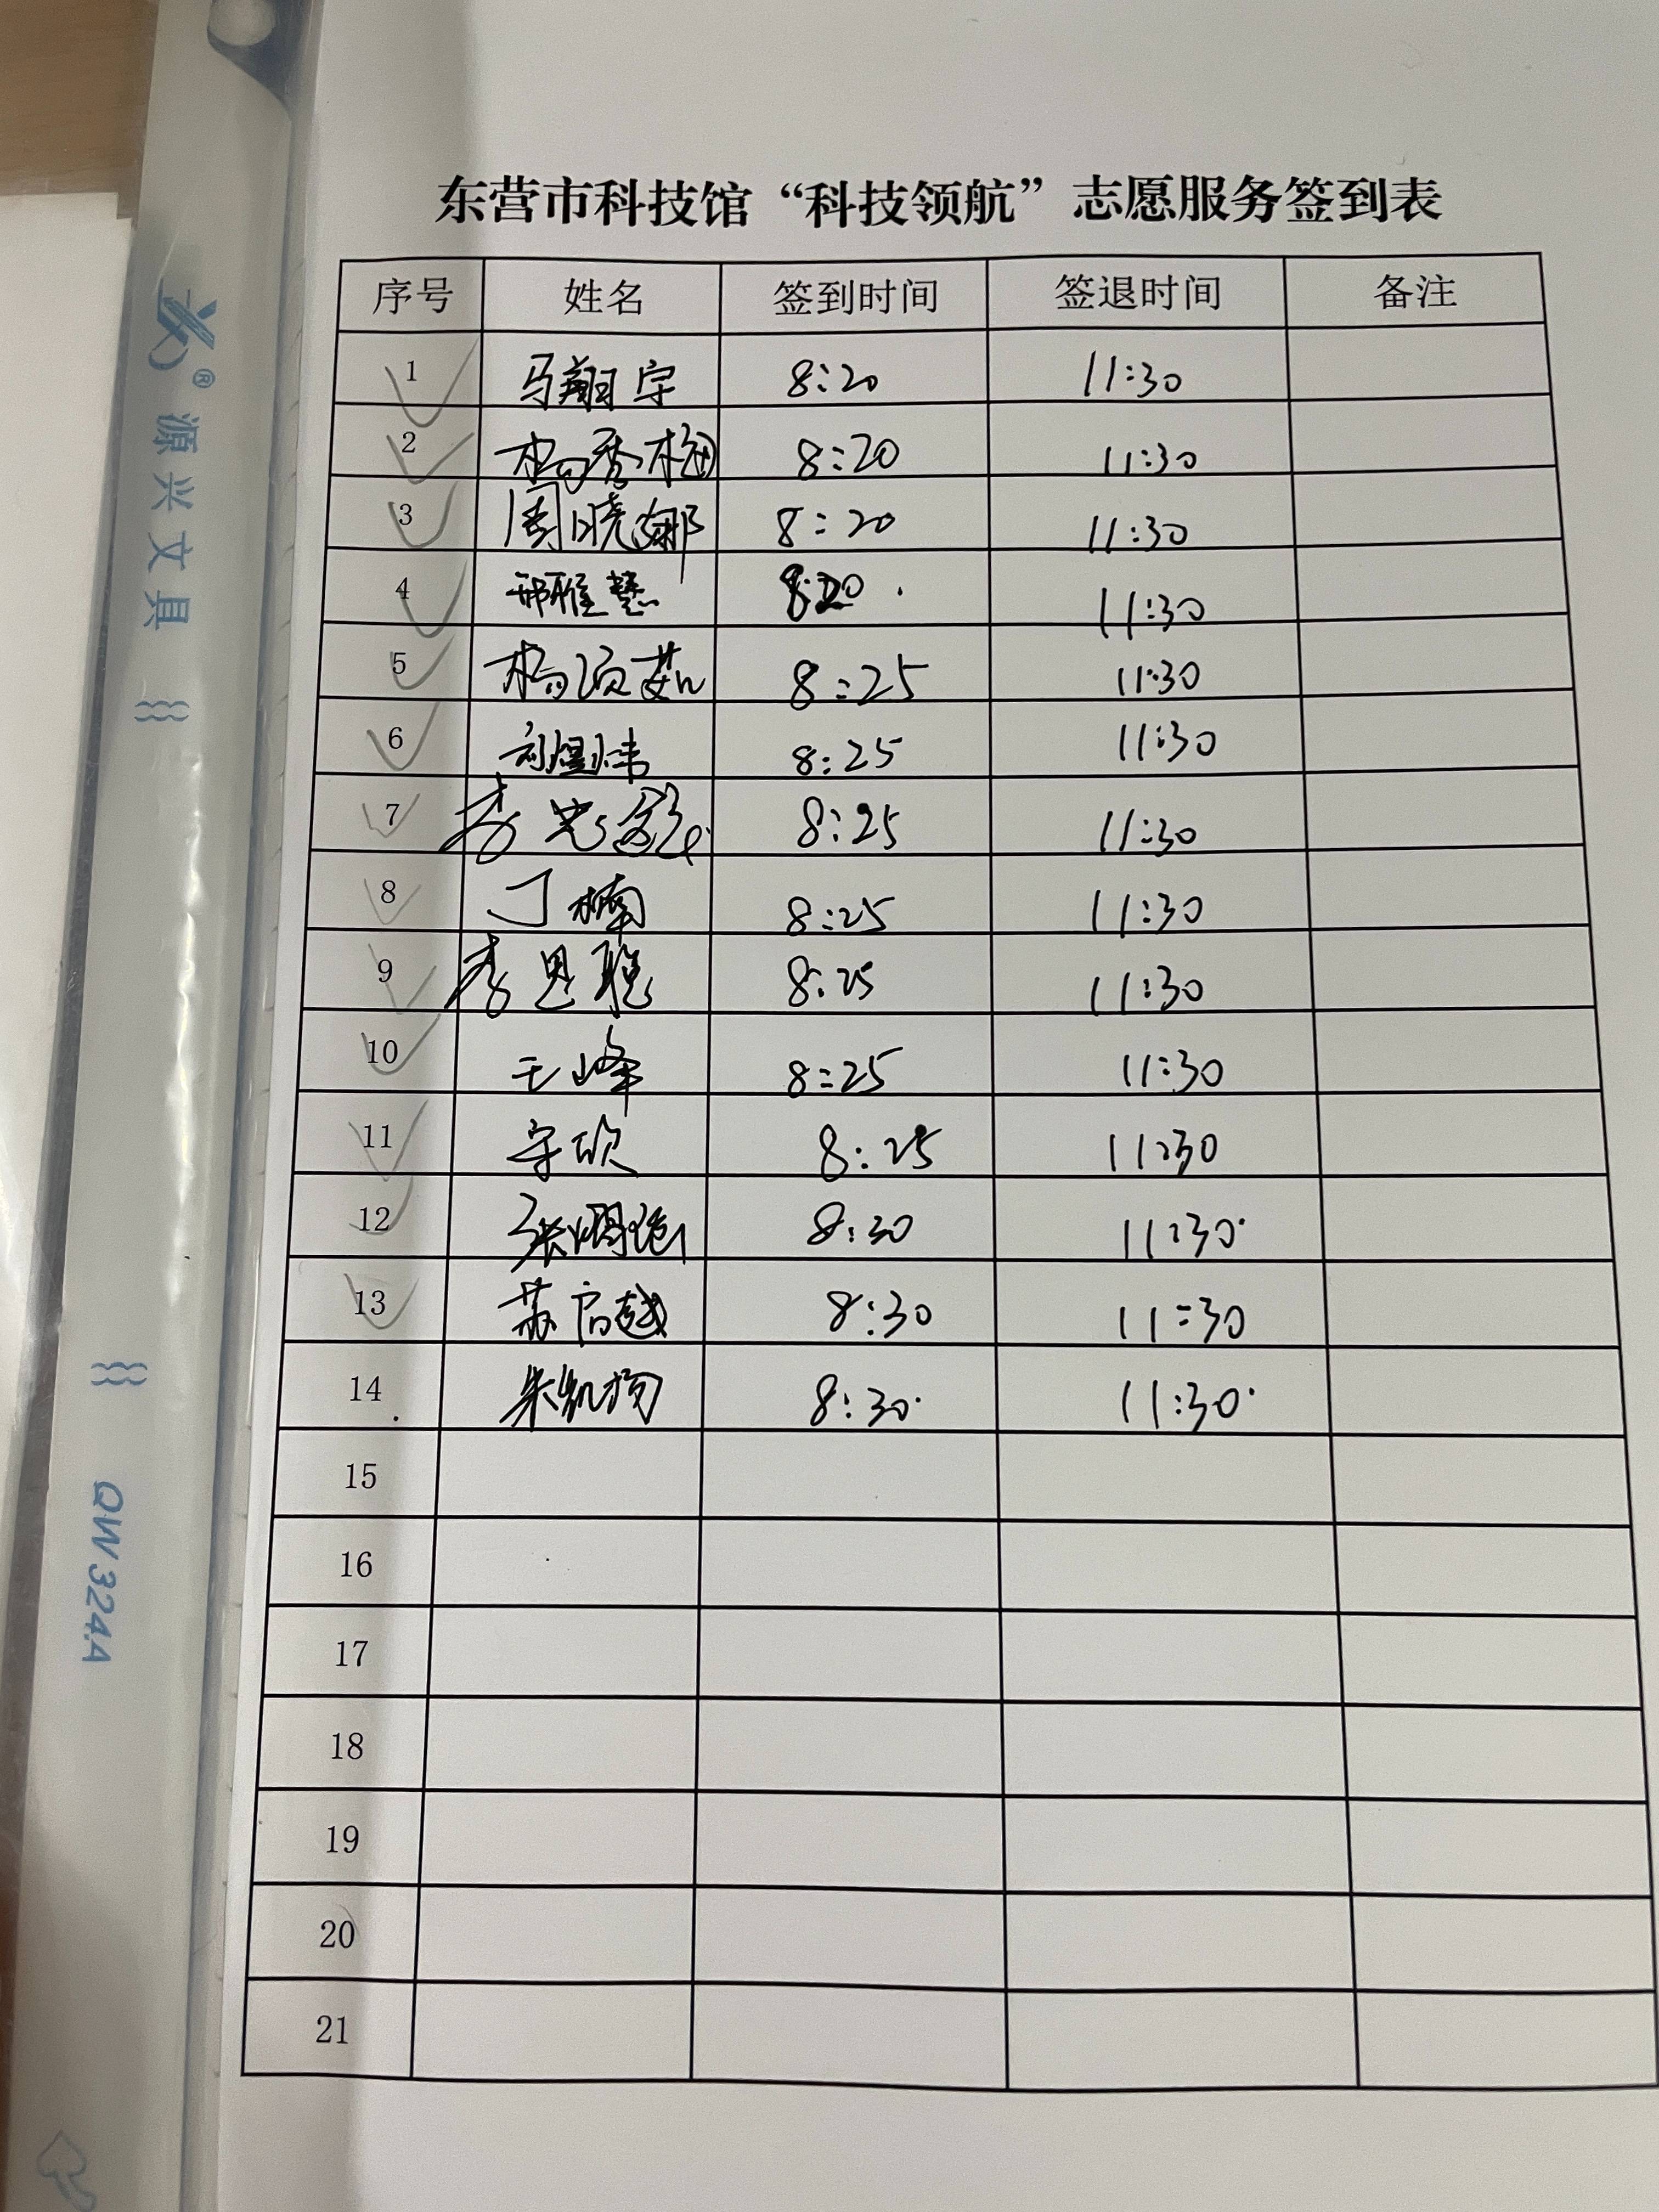 东营市科技馆“科技领航”志愿服务签到表
序号 姓名 签到时间 签退时间 备注
1 马翔宇 8:20 11:30
2 杨秀梅 8:20 11:30
3 周晓娜 8:20 11:30
4 邢雅慧 8:20 11:30
5 杨顺茹 8:25 11:30
6 刘煜炜 8:25 11:30
7 李 8:25 11:30
8 丁楠 8:25 11:30
9 李思聪 8:25 11:30
10 王峰 8:25 11:30
11 宋欣 8:25 11:30
12 张 8:30 11:30
13 苏启越 8:30 11:30
14 朱凯扬 8:30 11:30
15
16
17
18
19
20
21
® 源兴文具
QW324A